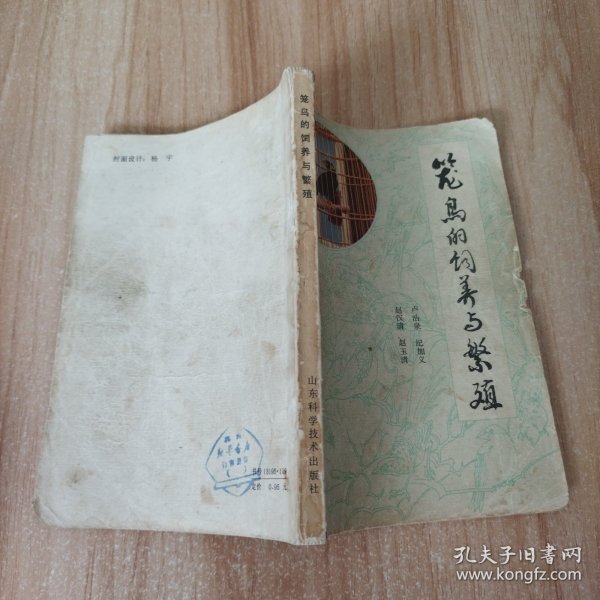 封面设计：杨 宇
笼鸟的饲养与繁殖
山东科学技术出版社
笼鸟的饲养与繁殖
卢治泉 纪加义
赵汉清 赵玉清
新华书店
定价 0.95 元
孔夫子旧书网
www.kongfz.com